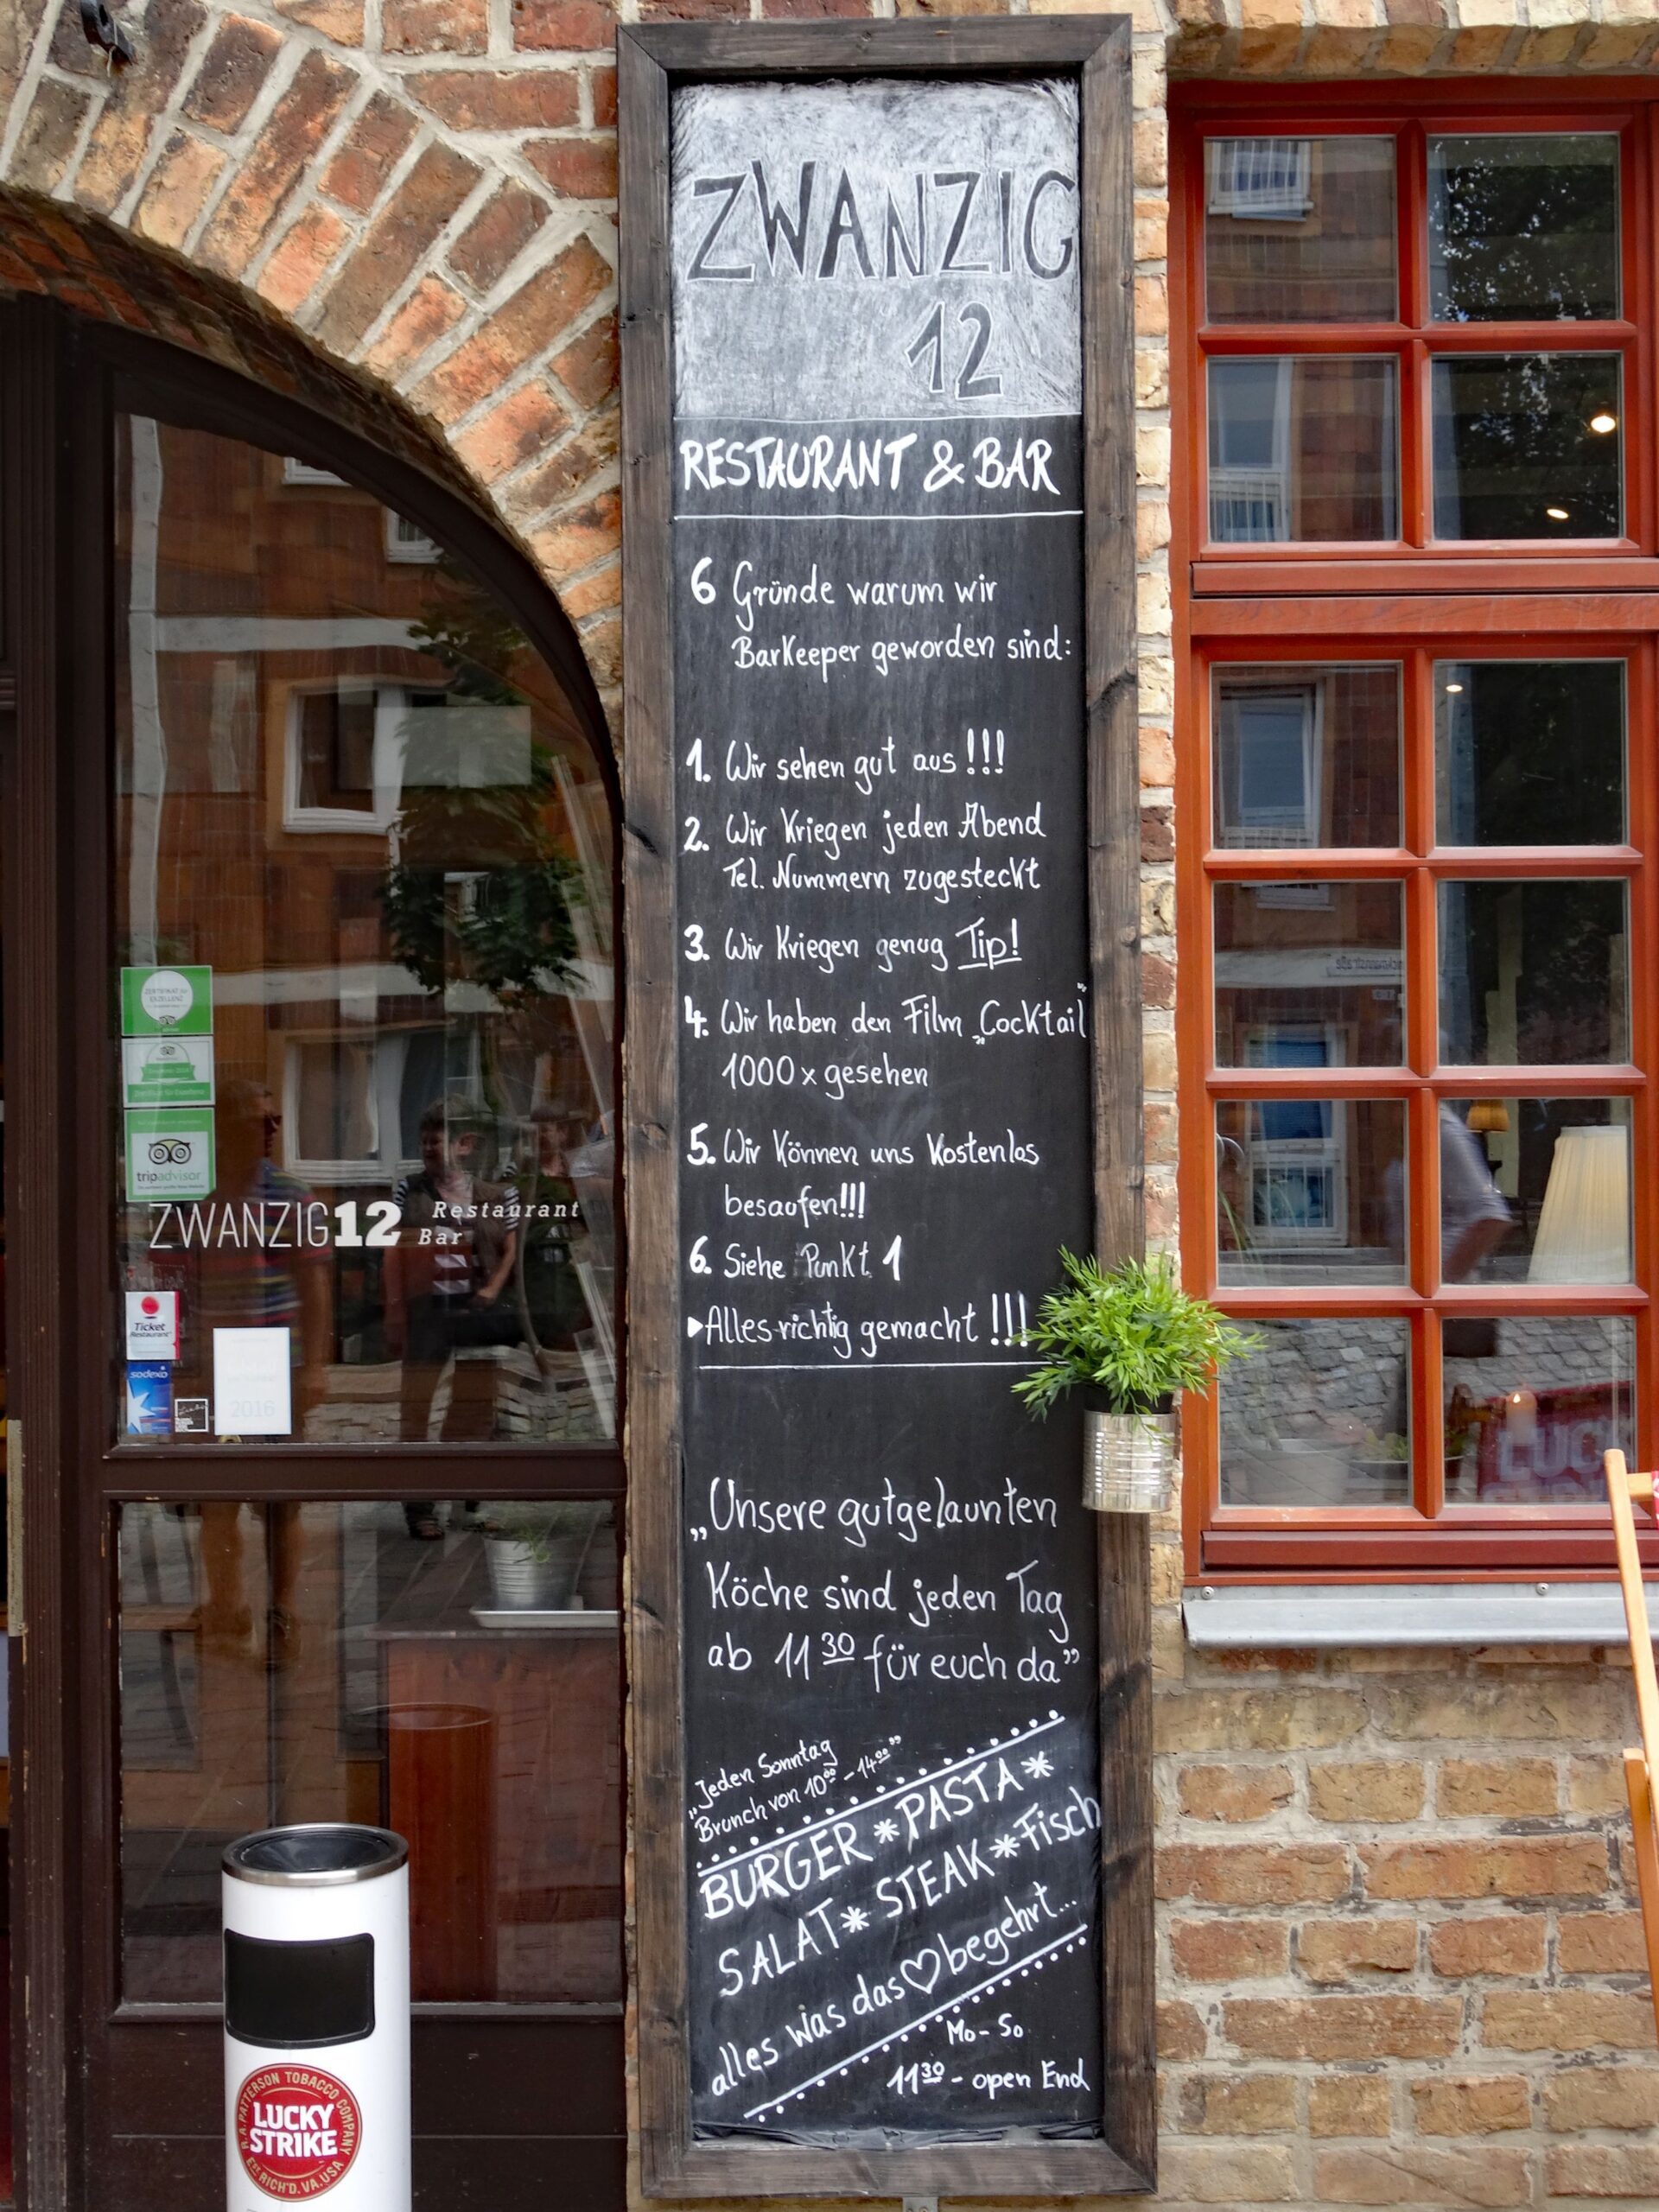 ZWANZIG
12
RESTAURANT & BAR
6 Gründe warum wir
Barkeeper geworden sind:
1. Wir sehen gut aus!!!
2. Wir Kriegen jeden Abend
Tel. Nummern zugesteckt
3. Wir Kriegen genug Tip!
4. Wir haben den Film „Cocktail"
1000x gesehen
5. Wir Können uns Kostenlos
besaufen!!!
6. Siehe Punkt 1
▸Alles richtig gemacht!!!
„Unsere gutgelaunten
Köche sind jeden Tag
ab 11 30 für euch da"
„Jeden Sonntag
Brunch von 10 00 - 14 00"
BURGER * PASTA *
SALAT * STEAK * Fisch
alles was das ♡ begehrt...
Mo - So
11 30 - open End
ZERTIFIKAT für
EXZELLENZ
tripadvisor
ZWANZIG12 Restaurant
Bar
Ticket
Restaurant
sodexo
2016
R.A. PATTERSON TOBACCO COMPANY
LUCKY
STRIKE
EST RICH'D. VA. USA
LUC